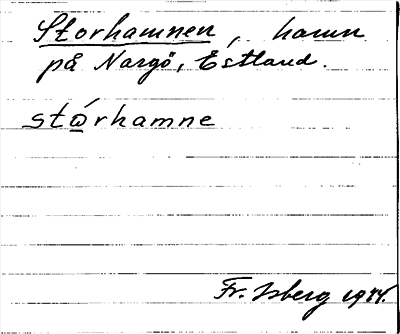 Storhamnen, hamn
på Nargö, Estland.
stώrhamne
Fr. Isberg 1944.